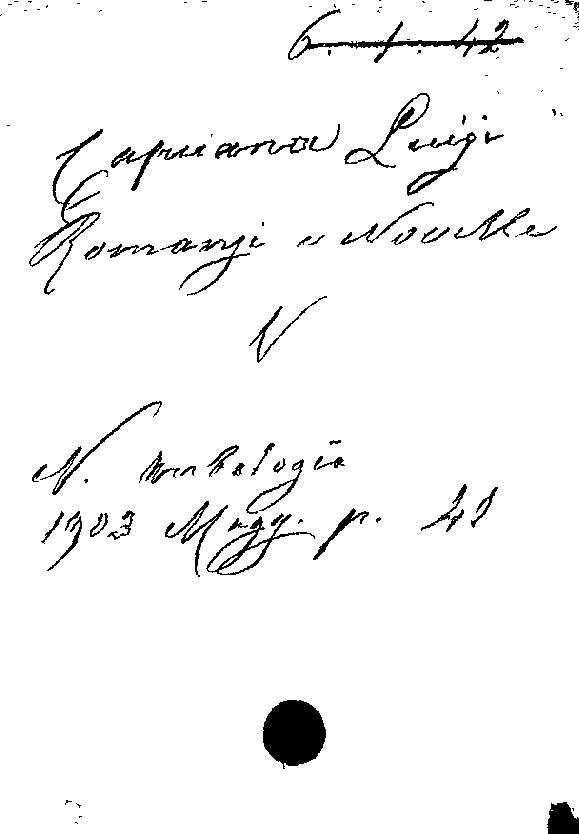 6. 1. 42
Capuana Luigi
Romanzi e Novelle
V
N. Antologia
1903 Magg. p. 21